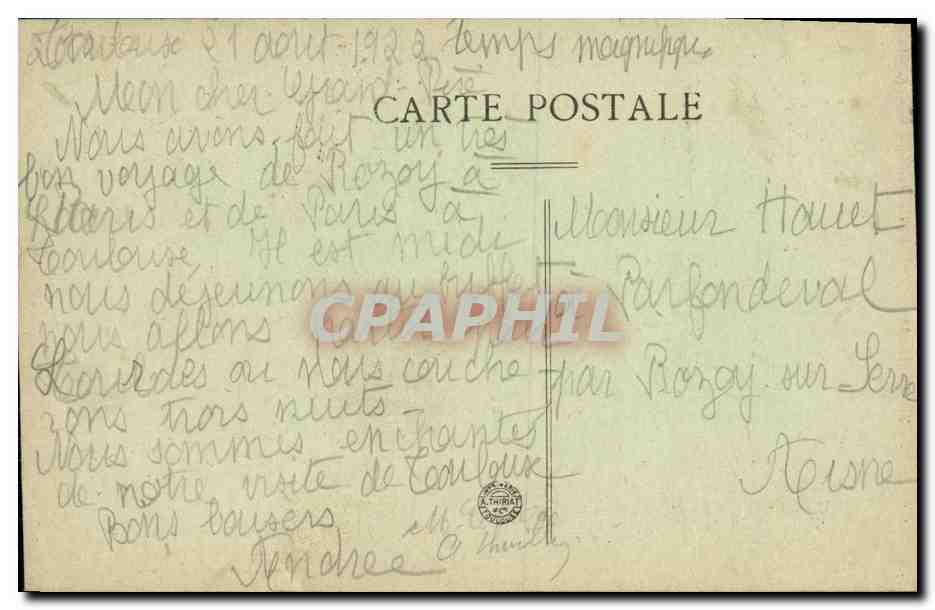 21 août 1922 temps magnifique
Mon cher Grand-Père
CARTE POSTALE
Nous avons fait un très
bon voyage de Rozoy à
Paris et de Paris à
Toulouse. Il est midi
nous déjeunons au buffet
nous allons
Lourdes ou nous couche-
rons trois nuits-
Nous sommes enchantés
de notre visite de Touloux
Bons baisers
Andrée
Monsieur Houet
à Parfondeval
par Rozoy sur Serre
Aisne
A. THIRIAT
TOULOUSE
CPAPHIL